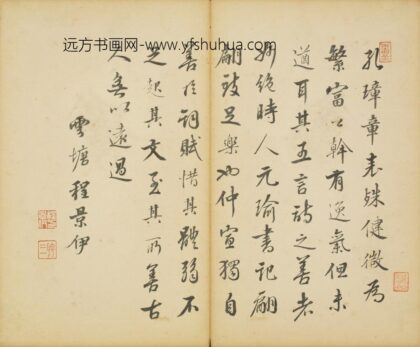 远方书画网-www.yfshuhua.com
孔璋章表殊健微為
繁富公幹有逸氣但未
遒耳其五言詩之善者
妙絕時人元瑜書記翩
翩致足樂也仲宣獨自
善於詞賦惜其體弱不
足起其文至其所善古
人無以遠過
雲塘程景伊